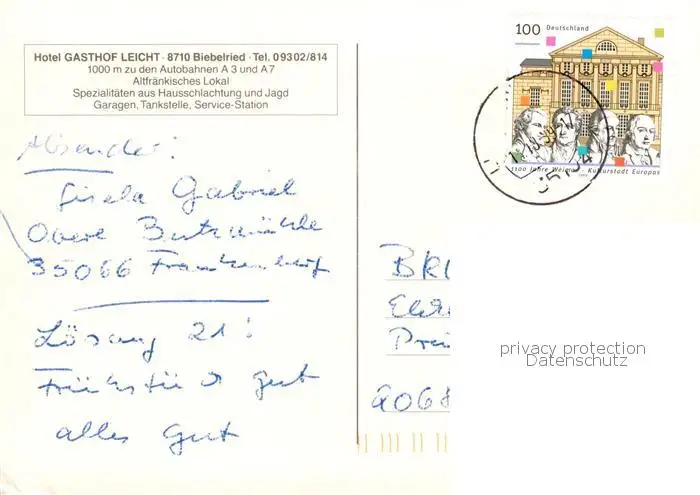 Hotel GASTHOF LEICHT · 8710 Biebelried · Tel. 09302/814
1000 m zu den Autobahnen A 3 und A 7
Altfränkisches Lokal
Spezialitäten aus Hausschlachtung und Jagd
Garagen, Tankstelle, Service-Station
100 Deutschland
1100 Jahre Weimar - Kulturstadt Europas
Absender:
Gisela Gabriel
Obere Butzmühle
35066 Frankenberg
Lösung 21:
Frühstück gut
alles gut
BRI
Prei
9068
privacy protection
Datenschutz